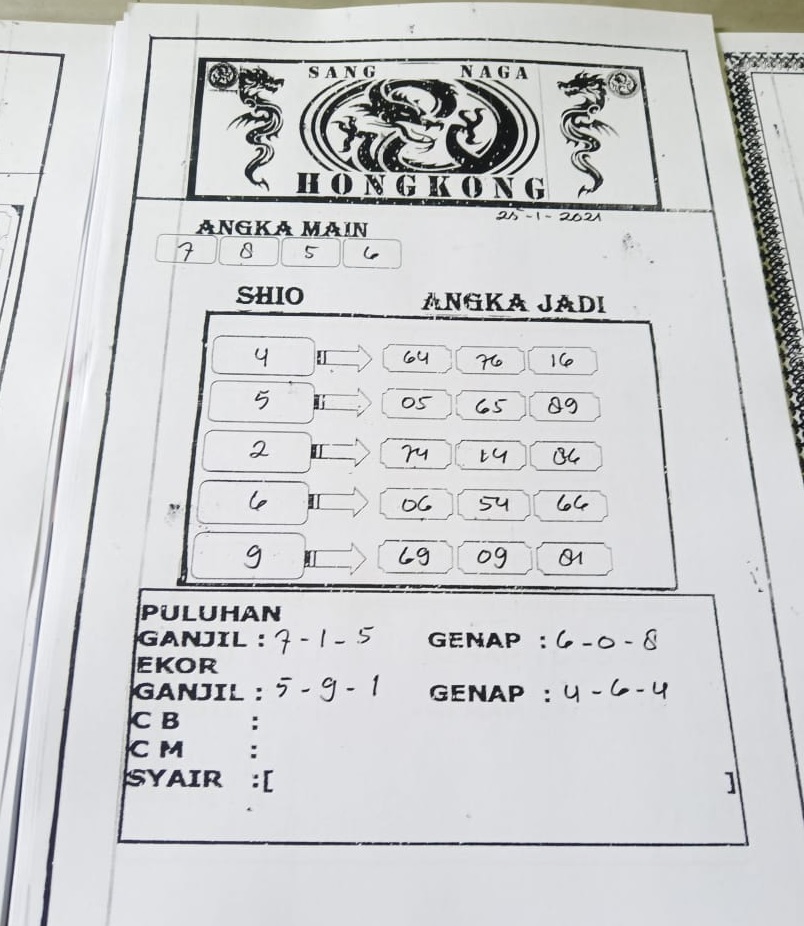 SANG NAGA
HONGKONG
25-1-2021
ANGKA MAIN
7 8 5 6
SHIO ANGKA JADI
4 64 76 16
5 05 65 89
2 74 14 86
6 06 54 66
9 69 09 81
PULUHAN
GANJIL : 7-1-5 GENAP : 6-0-8
EKOR
GANJIL : 5-9-1 GENAP : 4-6-4
C B :
C M :
SYAIR :[ ]